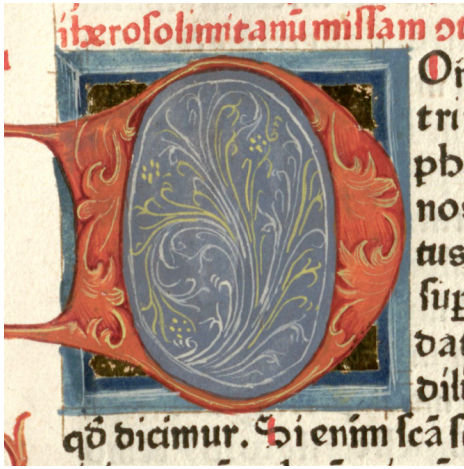 iherosolimitanū missam
D
O
tri
ph
nos
tus
sup
dat
dili
qđ dicimur. Si enim scā